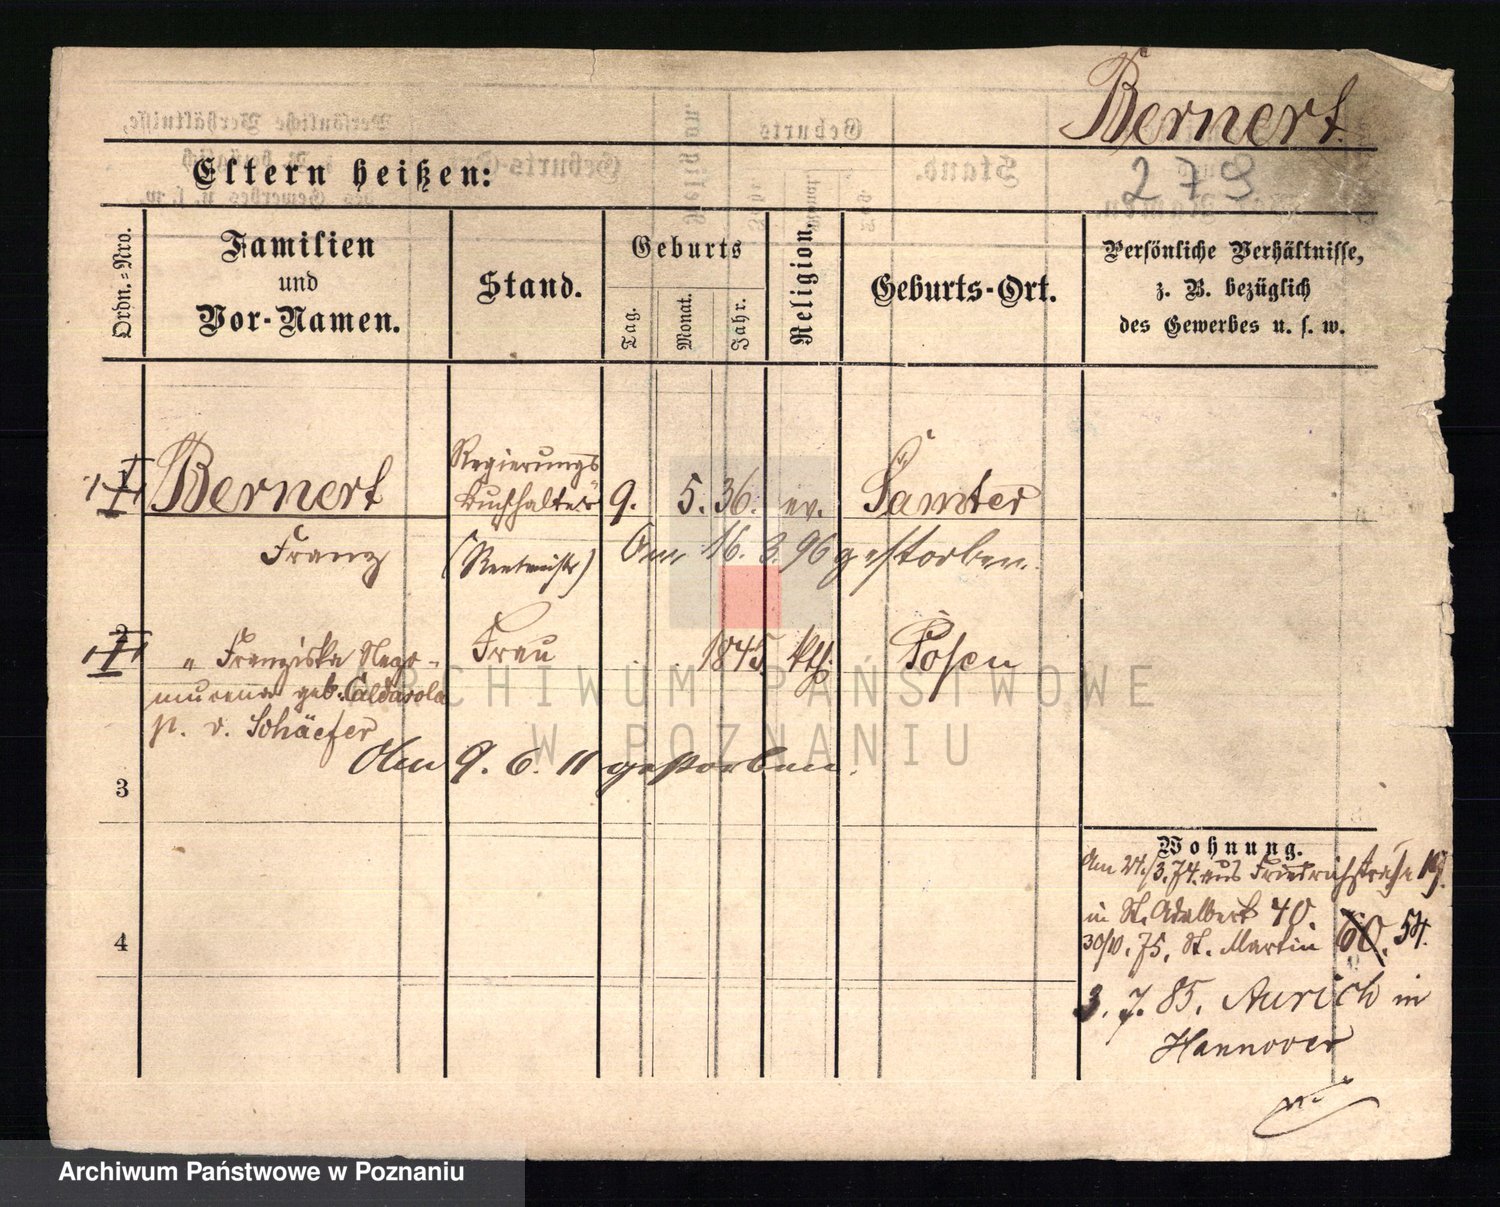 Bernert.
279
Eltern heißen:
Ordn.-Nro.
Familien
und
Vor-Namen.
Stand.
Geburts
Tag.
Monat.
Jahr.
Religion.
Geburts-Ort.
Persönliche Verhältnisse,
z. B. bezüglich
des Gewerbes u. s. w.
1
Bernert
Franz
Regierungs
Buchhalter
(Rentmstr)
9. 5. 36. ev. Samter
Am 16. 3. 96 gestorben.
2
" Franziska Nepo-
mucena geb. Caldarola
p. v. Schäefer
Frau
1845. kth. Posen
Am 9. 6. 11 gestorben.
3
4
Wohnung.
Am 24/3. 74. aus Friedrichstraße 19.
in St. Adalbert 40.
30/IV. 75. St. Martin 60. 54.
3. 7. 85. Aurich in
Hannover
ARCHIWUM PAŃSTWOWE
W POZNANIU
Archiwum Państwowe w Poznaniu